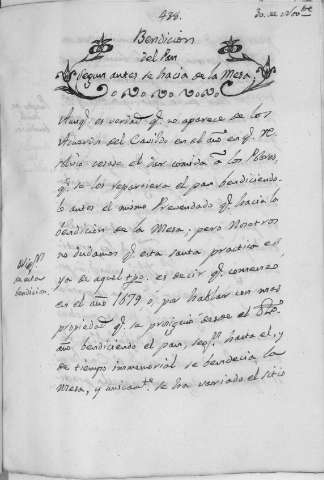 438.
30. de Nov.bre
Bendicion
del Pan
segun antes se hacia de la Mesa.
Aunq.e es verdad q.e no aparece de los
Acuerdos del Cavildo en el año en q.e
cesase el dar comida a los Pobres,
q.e se los repartiera el pan bendiciendo-
lo antes el mismo Presendado q.e hacia la
bendicion de la Mesa; pero Nosotros
no dudamos q.e esta santa practica es
ya de aquel tpo. es decir q.e comenzo
en el año 1679. ó, por hablar con mas
propiedad q.e se prosiguio desde el
año bendiciendo el pan, seg.n hasta el, y
de tiempo immemorial se bendecia la
Mesa, y unicam.te se ha variado el sitio
de esta
bendicion.